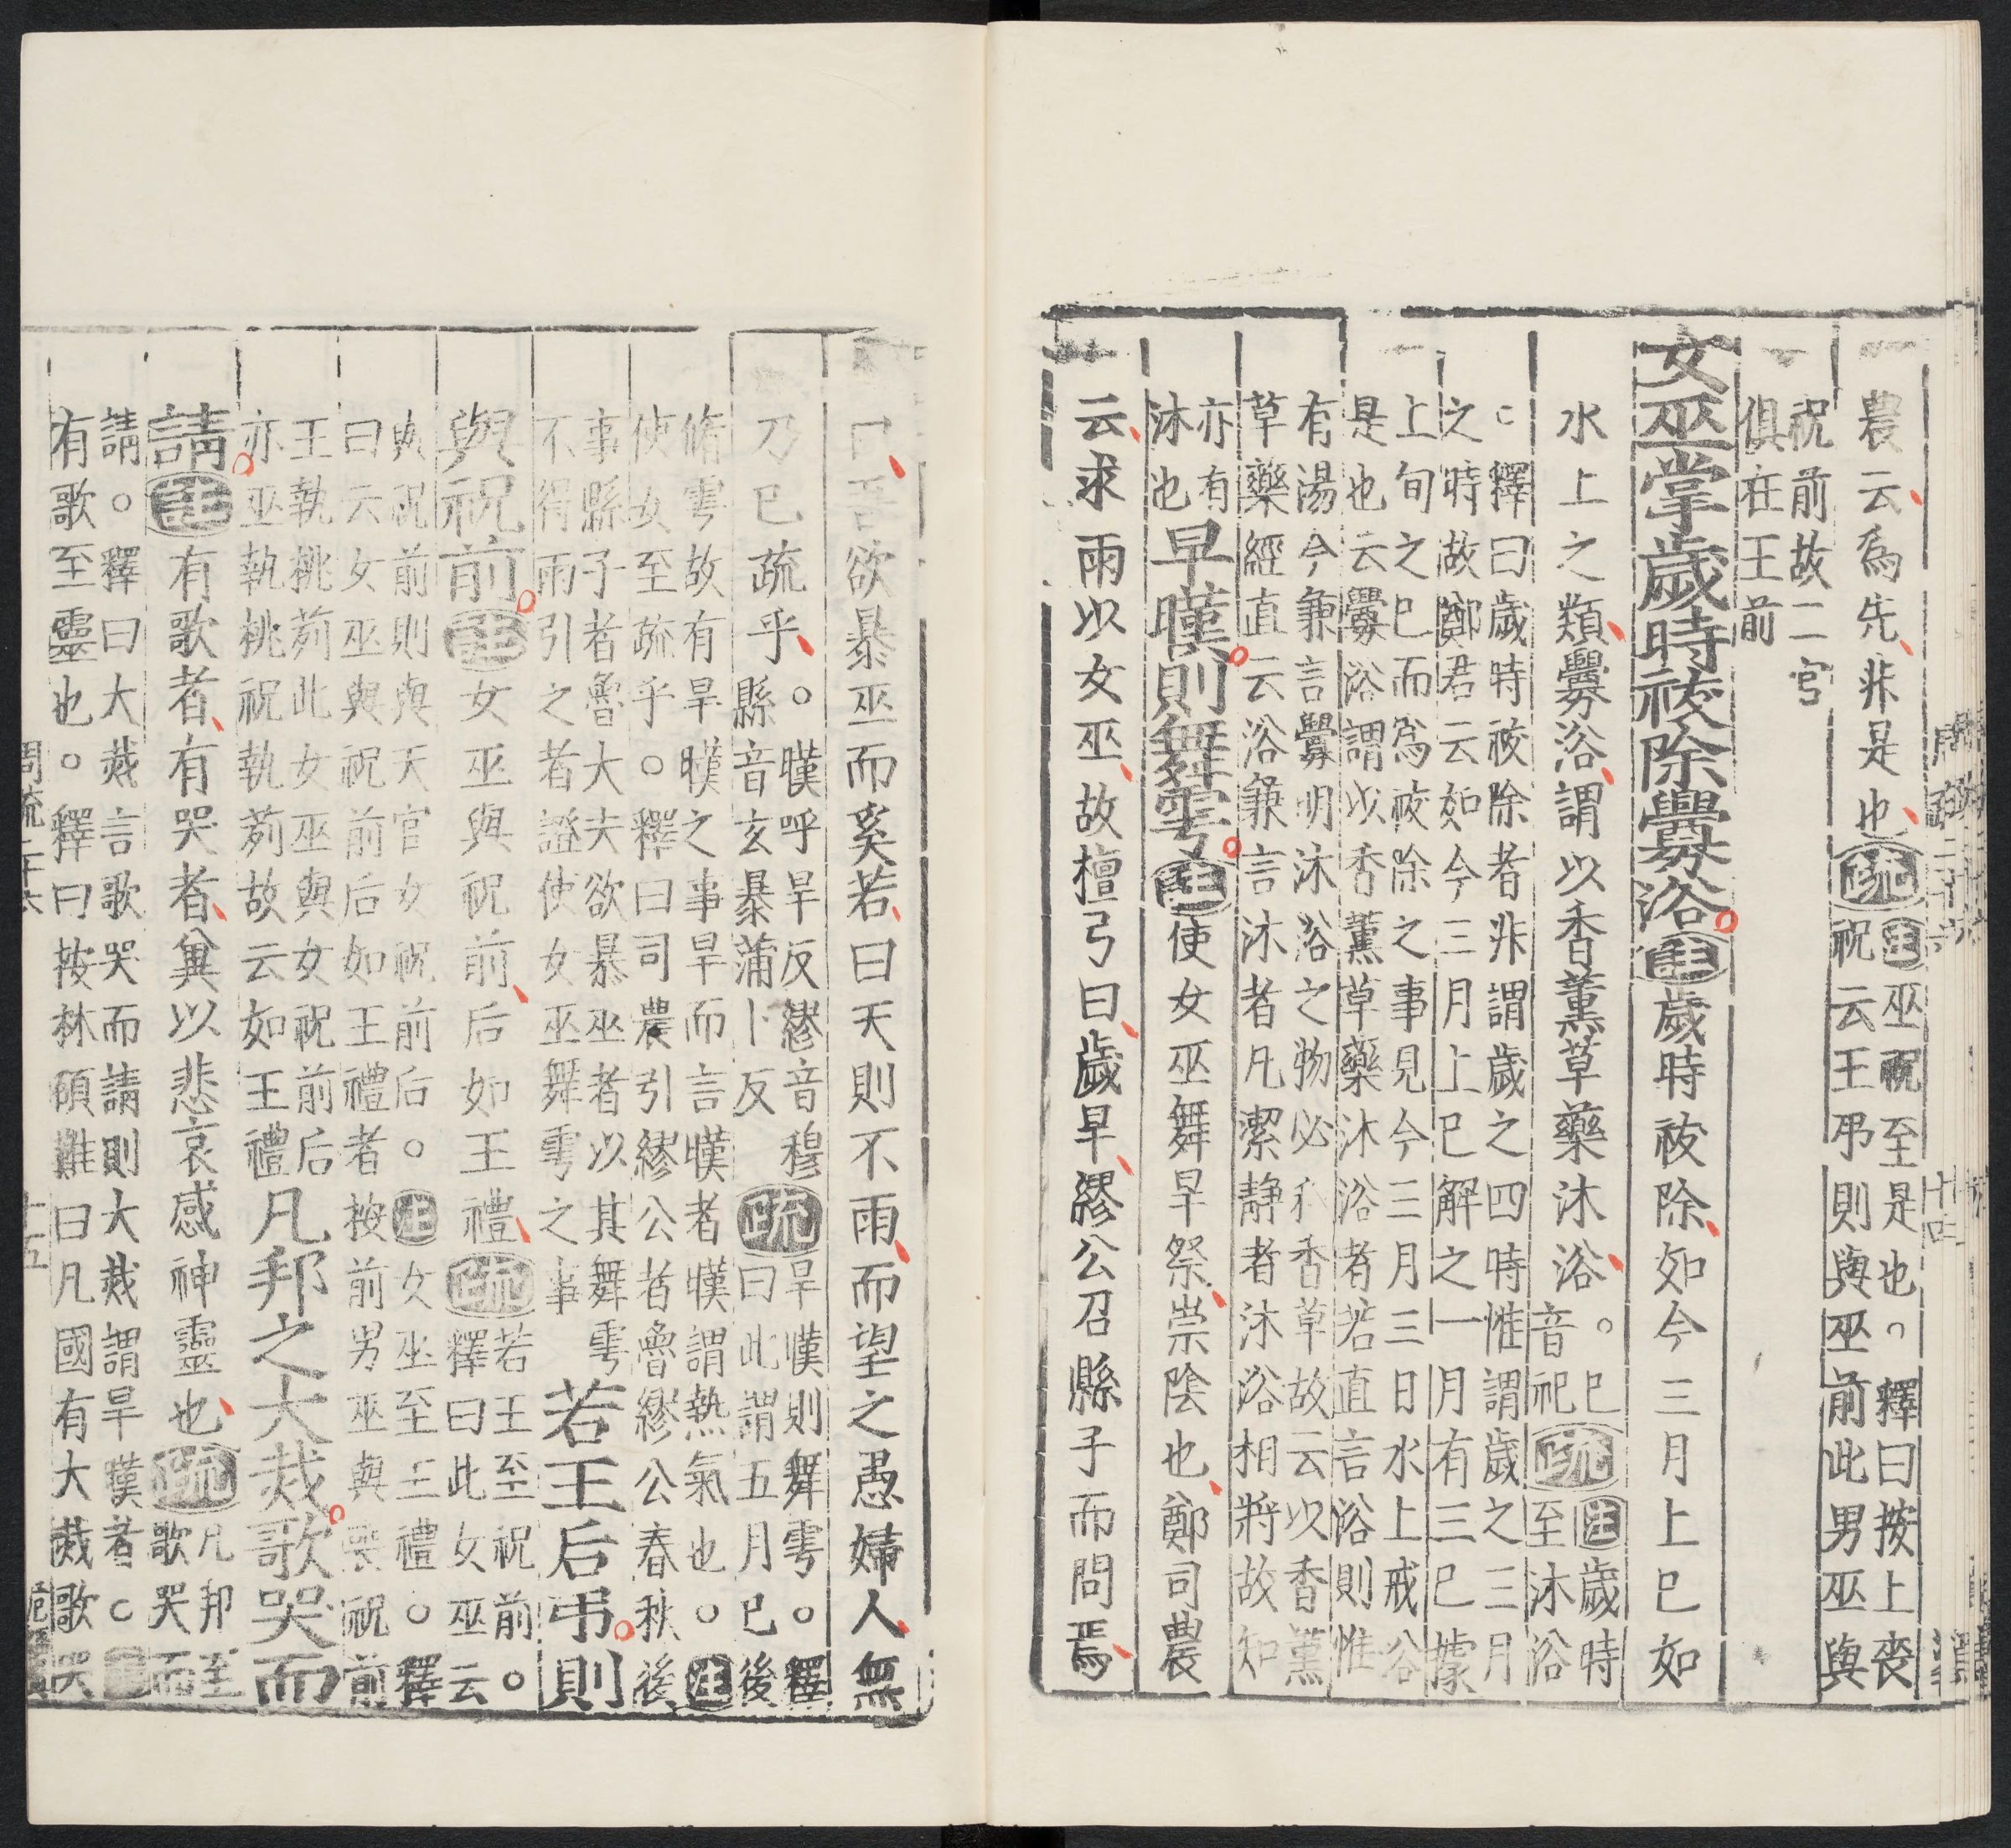 農云爲先非是也疏注巫祝至是也。釋曰按上喪
祝云王弔則與巫前此男巫與
祝前故二官
俱在王前
女巫掌歲時祓除釁浴注歲時祓除如今三月上巳如
水上之類釁浴謂以香薰草藥沐浴。巳
音祀疏注歲時
至沐浴
。釋曰歲時祓除者非謂歲之四時惟謂歲之三月
之時故鄭君云如今三月上巳解之一月有三巳據
上旬之巳而爲祓除之事見今三月三日水上戒浴
是也云釁浴謂以香薰草藥沐浴者若直言浴則惟
有湯今兼言釁明沐浴之物必和香草故云以香薰
草藥經直云浴兼言沐者凡潔静者沐浴相將故知
亦有
沐也旱暵則舞雩注使女巫舞旱祭崇陰也鄭司農
云求雨以女巫故檀弓曰歲旱繆公召縣子而問焉
曰吾欲暴巫而奚若曰天則不雨而望之愚婦人無
乃已疏乎。暵呼旱反繆音穆
縣音玄暴蒲卜反疏旱暵則舞雩。釋
曰此謂五月已後
脩雩故有旱暵之事旱而言暵者暵謂熱氣也。注
使女至疏乎。釋曰司農引繆公者魯繆公春秋後
事縣子者魯大夫欲暴巫者以其舞雩
不得雨引之者證使女巫舞雩之事若王后弔則
與祝前注女巫與祝前后如王禮疏若王至祝前。
釋曰此女巫云
與祝前則與天官女祝前后。注女巫至王禮。釋
曰云女巫與祝前后如王禮者按前男巫與喪祝前
王執桃茢此女巫與女祝前后
亦巫執桃祝執茢故云如王禮凡邦之大烖歌哭而
請注有歌者有哭者兾以悲哀感神靈也疏凡邦至
歌哭而
請。釋曰大烖言歌哭而請則大烖謂旱暵者。
有歌至靈也。釋曰按林碩難曰凡國有大烖歌哭
周疏二十六
十五